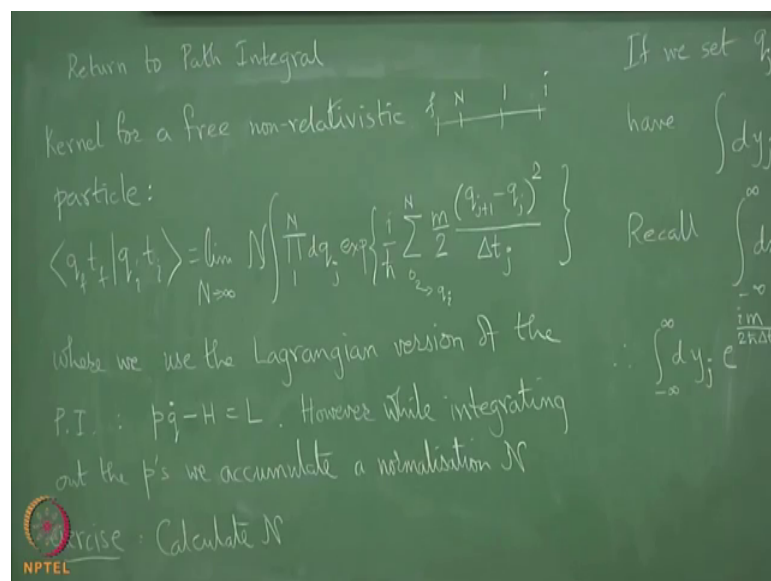 Return to Path Integral
Kernel for a free non-relativistic f N 1 i
particle:
⟨q_f t_f | q_i t_i⟩ = lim_{N→∞} N ∫ ∏_1^N dq_j exp{ i/ħ ∑_0^N m/2 (q_{j+1} - q_j)^2 / Δt_j }
where we use the Lagrangian version of the
P.I. : pq̇ - H = L. However while integrating
out the p's we accumulate a normalisation N
Exercise : Calculate N
If we set q_j
have ∫ dy_j
Recall ∫_{-∞}^{∞}
∴ ∫_{-∞}^{∞} dy_j e^{im/2ħΔt
NPTEL